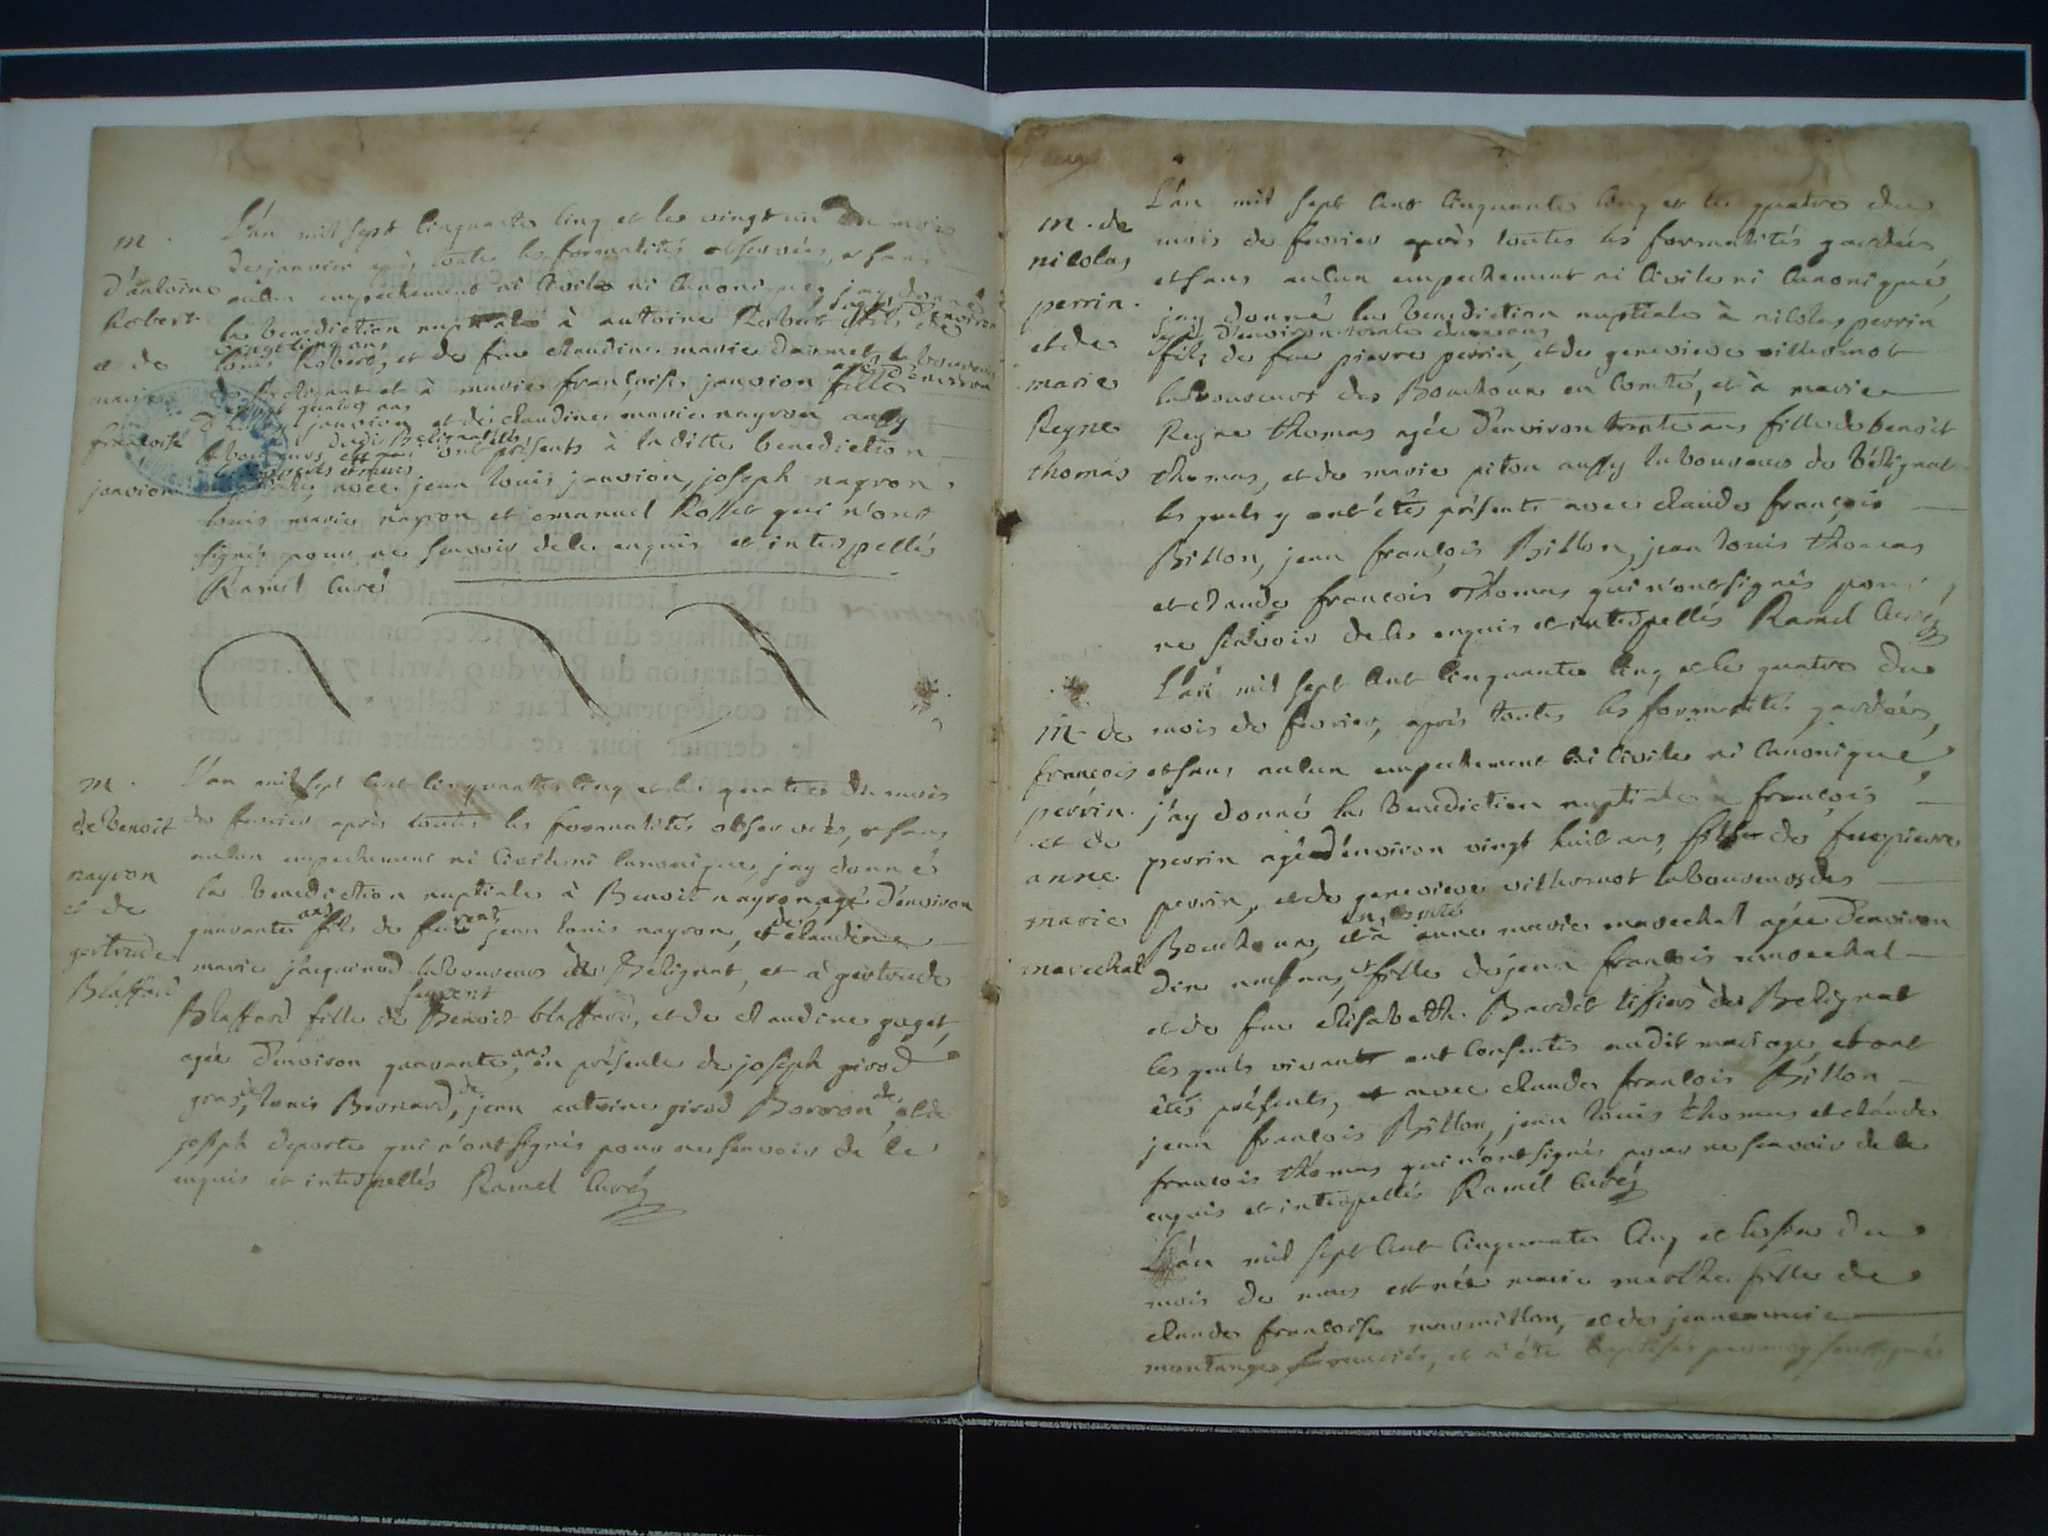 m.
d'antoine
Robert
et de
marie
françoise
janvion
L'an mil sept cinquante cinq et le vingt un du mois
de janvier après toutes les formalités observées, et sans
aucun empechement ni civile ni canonique, jay donné
la benediction nuptiale à antoine Robert agé d'environ
vingt cinq ans fils de
louis Robert, et de feue claudine marie laboureur
de Belignat et à marie françoise janvion agée d'environ
vingt quatre ans fille
janvion et de claudine marie nayron aussy
laboureurs dudit Belignat
ont présents à la ditte benediction
avec jean louis janvion, joseph nayron,
louis marie nayron et emanuel Rollet qui n'ont
signés pour ne scavoir de le enquis et interpellés
Ramel Curé
m.
de Benoit
nayron
et de
gertrude
Blaffard
L'an mil sept cent cinquante cinq et le quatre du mois
de fevrier après toutes les formalités observées, et sans
aucun empechement ni civile ni canonique, jay donné
la benediction nuptiale à Benoit nayron agé d'environ
quarante ans fils de feu jean louis nayron, et de claudine
marie jacquinod laboureurs de Belignat, et à gertrude
Blaffard fille de Benoit blaffard, et de claudine guget,
agée d'environ quarante ans, en présence de joseph girod
gras, de louis Bernard, de jean antoine girod Borron, et de
joseph deporte qui n'ont signés pour ne scavoir de le
enquis et interpellés Ramel Curé
m. de
nicolas
perrin.
et de
marie
Reyne
thomas
L'an mil sept cent cinquante cinq et le quatre du
mois de fevrier après toutes les formalités gardées,
et sans aucun empechement ni civile ni canonique,
jay donné la benediction nuptiale à nicolas perrin
agé d'environ trente deux ans
fils de feu pierre perrin, et de genevieve villermot
laboureurs de Bouchoux en Comté, et à marie
Reyne thomas agée d'environ trente ans fille de benoit
thomas, et de marie piton aussy laboureurs de béllignat
lesquels y ont étés présents avec claude françois
Billon, jean françois Billon, jean louis thomas
et claude françois thomas qui n'ont signés pour
ne scavoir de les enquis et interpellés Ramel Curé
m. de
francois
perrin.
et de
anne
marie
marechal
L'an mil sept cent cinquante cinq et le quatre du
mois de fevrier, après toutes les formalités gardées,
et sans aucun empechement ni civile ni canonique,
jáy donné la benediction nuptiale à françois
perrin agé d'environ vingt huit ans, fils de feu pierre
perrin, et de genevieve villermot laboureurs des
Bouchoux en comté, et à anne marie marechal agée d'environ
dix neuf ans, fille de jean francois marechal
et de feue elisabeth Bardet tissiers de Belignat
lesquels vivants ont consentis audit mariage, et ont
étés présents, et avec claude francois Billon
jean francois Billon, jean louis thomas et claude
francois thomas qui n'ont signés pour ne scavoir de le
enquis et interpellés Ramel Curé
L'an mil sept cent cinquante cinq et le six du
mois de mars est née marie marthe fille de
claude françois marmillon, et de jeanne marie
montange mariés, et a été baptisée par moy soussigné